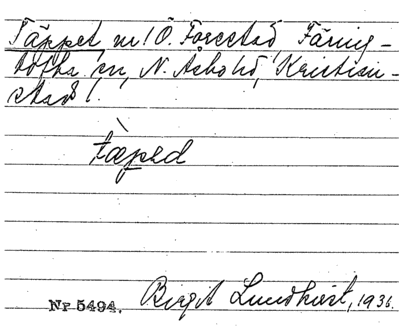 Täppet, n / Ö. Forestad Färing-
tofta sn, N. Åsbo hd, Kristian-
stads l.
tæped
Nr 5494. Birgit Lundkvist, 1936.